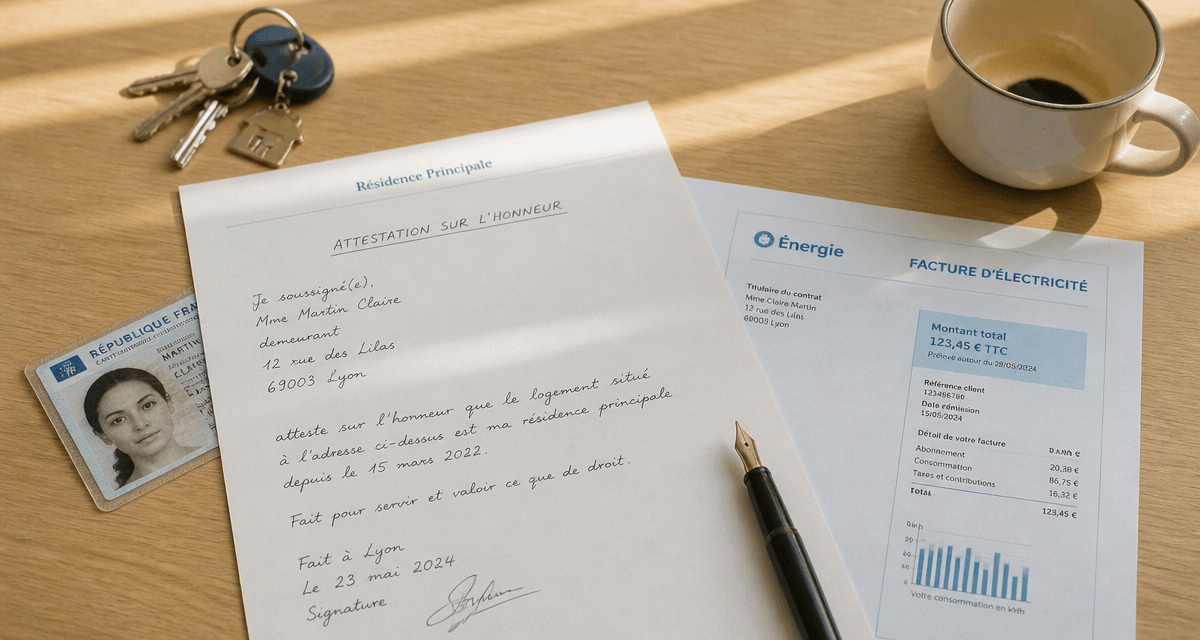 Résidence Principale
ATTESTATION SUR L'HONNEUR
Je soussigné(e),
Mme Martin Claire
demeurant
12 rue des Lilas
69003 Lyon
atteste sur l'honneur que le logement situé
à l'adresse ci-dessus est ma résidence principale
depuis le 15 mars 2022.
Fait pour servir et valoir ce que de droit.
Fait à Lyon
Le 23 mai 2024
Signature
RÉPUBLIQUE FRA
MARTIN
Énergie
FACTURE D'ÉLECTRICITÉ
Titulaire du contrat
Mme Claire Martin
12 rue des Lilas
69003 Lyon
Montant total
123,45 € TTC
Prélevé autour du 29/05/2024
Référence client
123486700
Date
15/05/2024
Détail de votre facture
Abonnement 20,38 €
Consommation 86,75 €
Taxes et contributions 16,32 €
Total 123,45 €
Votre consommation en kWh